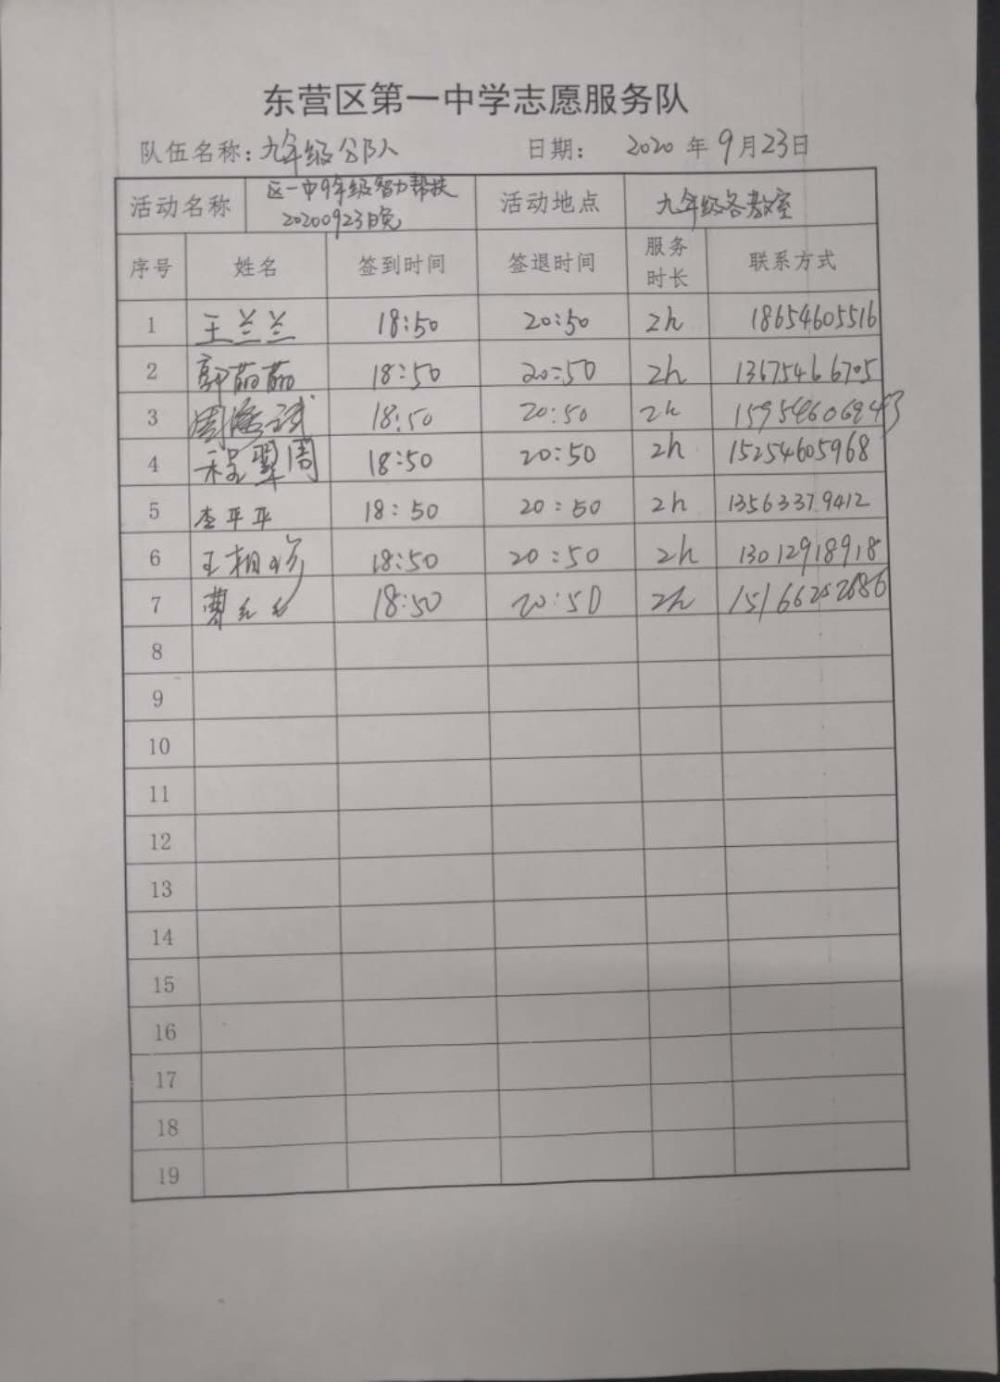 东营区第一中学志愿服务队
队伍名称：九年级分队 日期： 2020 年 9月23日
活动名称 区一中9年级智力帮扶 20200923晚 活动地点 九年级各教室
序号 姓名 签到时间 签退时间 服务时长 联系方式
1 王兰兰 18:50 20:50 2h 18654605516
2 郭茹茹 18:50 20:50 2h 13675466705
3 18:50 20:50 2h
4 程翠周 18:50 20:50 2h 15254605968
5 李平平 18:50 20:50 2h 13563379412
6 王相 18:50 20:50 2h 13012918918
7 曹 18:50 20:50 2h 15166252686
8
9
10
11
12
13
14
15
16
17
18
19